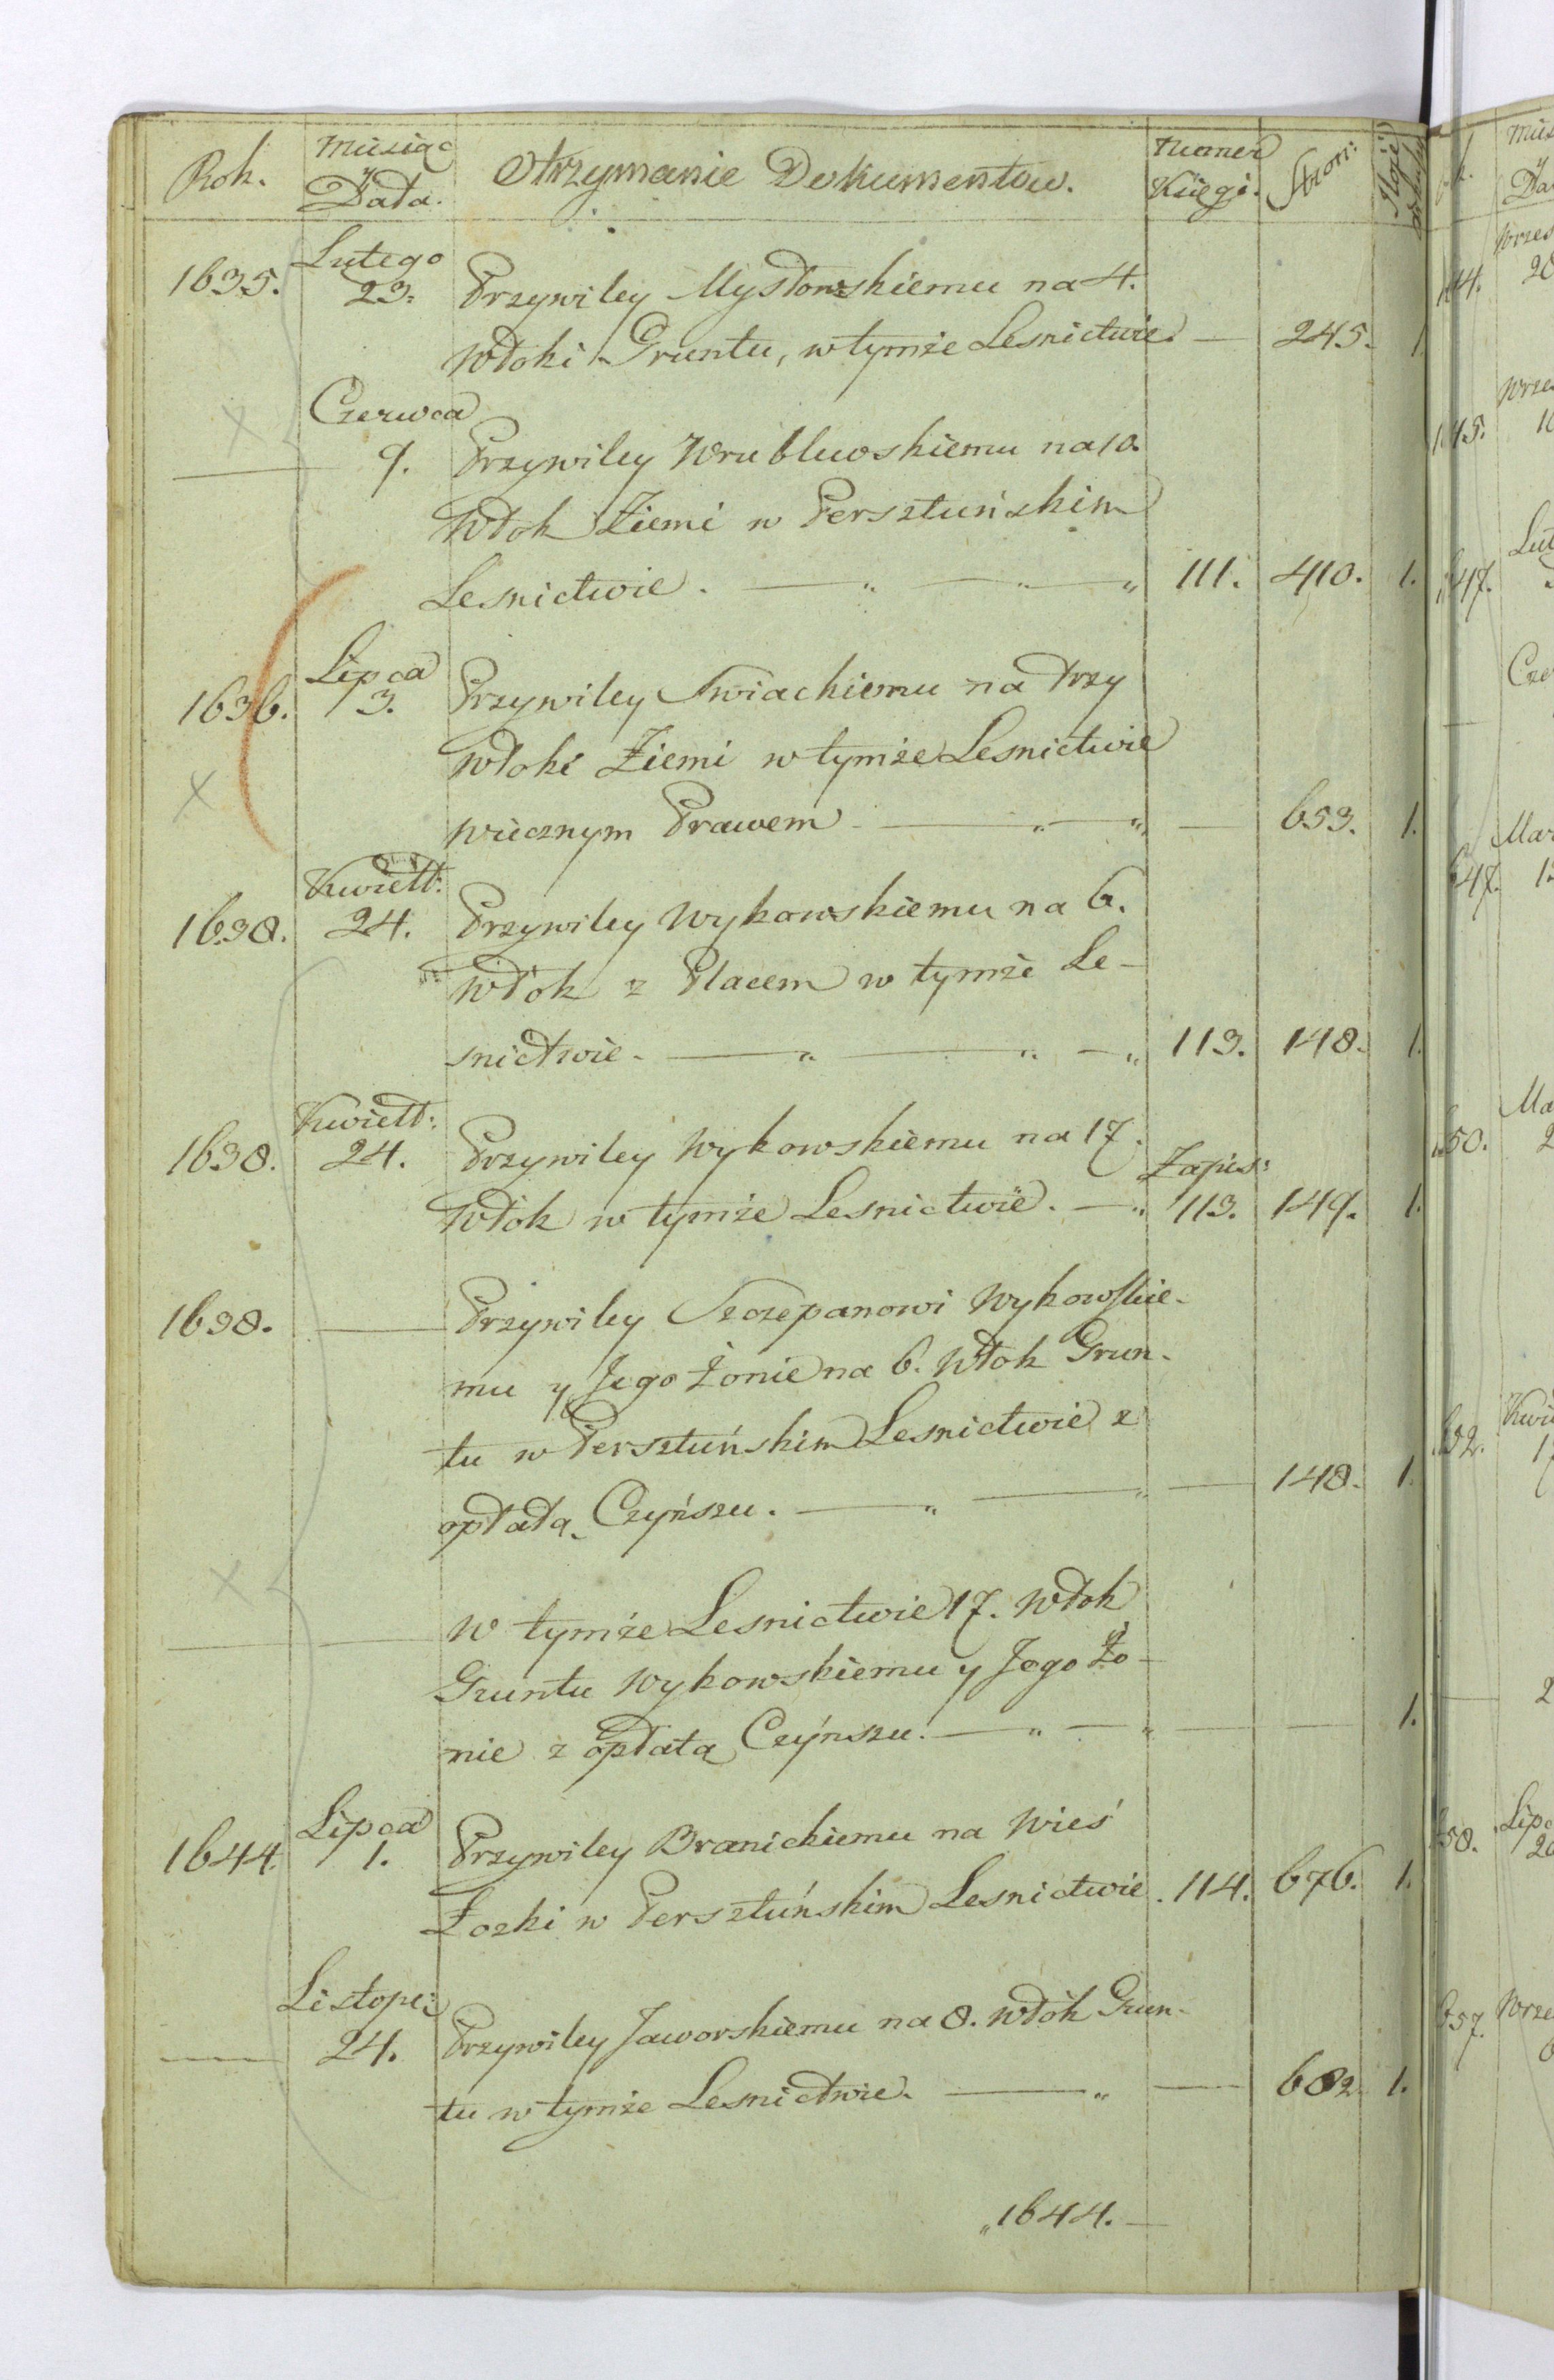 Rok. Miesiąc y Data. Otrzymanie Dokumentow. Numer Księgi. Stron: Ilość
1635. Lutego 23. Przywiley Mysłowskiemu na 4.
Włoki Gruntu, w tymże Lesnictwie. — 245. 1
— Czerwca 9. Przywiley Wrublewskiemu na 10.
Włok Ziemi w Persztuńskim
Lesnictwie. — „ — „ — „ 111. 410. 1.
1636. Lipca 3. Przywiley Swiackiemu na trzy
Włoki Ziemi w tymże Lesnictwie
wiecznym Prawem — „ — „ — 653. 1.
1638. Kwiett: 24. Przywiley Wykowskiemu na 6.
Włok z Placem w tymże Le-
snictwie. — „ — „ — „ 113. 148. 1.
1638. Kwiett: 24. Przywiley Wykowskiemu na 17.
Włok w tymże Lesnictwie. — „ Zapis: 113. 149. 1.
1638. — Przywiley Szczepanowi Wykowskie-
mu y Jego Żonie na 6. Włok Grun-
tu w Persztuńskim Lesnictwie z
opłatą Czynszu. — „ — „ — 148. 1.
— — W tymże Lesnictwie 17. Włok
Gruntu Wykowskiemu y Jego Żo-
nie z opłatą Czynszu. — „ — „ — — 1.
1644. Lipca 1. Przywiley Branickiemu na Wieś
Łozki w Persztuńskim Lesnictwie. 114. 676. 1.
— Listop: 24. Przywiley Jaworskiemu na 8. włok Grun-
tu w tymże Lesnictwie. — „ — 682. 1.
„1644. —